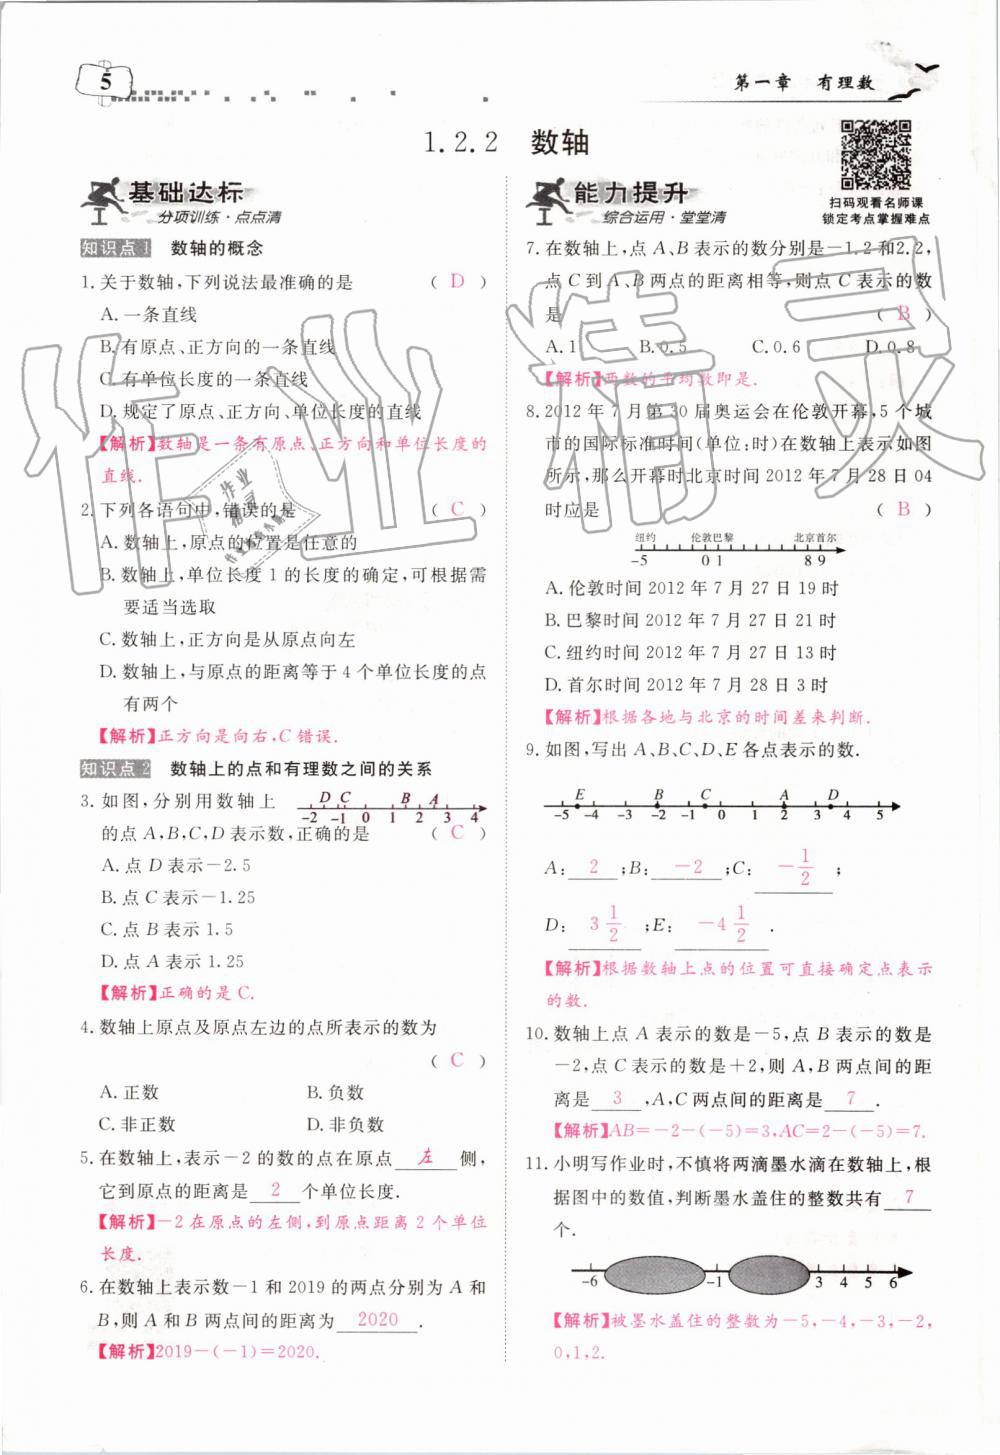 5
第一章　有理数
1.2.2　数轴
基础达标
分项训练·点点清
知识点1　数轴的概念
1. 关于数轴,下列说法最准确的是 ( D )
A. 一条直线
B. 有原点、正方向的一条直线
C. 有单位长度的一条直线
D. 规定了原点、正方向、单位长度的直线
【解析】数轴是一条有原点、正方向和单位长度的
直线.
2. 下列各语句中,错误的是 ( C )
A. 数轴上,原点的位置是任意的
B. 数轴上,单位长度 1 的长度的确定,可根据需
要适当选取
C. 数轴上,正方向是从原点向左
D. 数轴上,与原点的距离等于 4 个单位长度的点
有两个
【解析】正方向是向右,C 错误.
知识点2　数轴上的点和有理数之间的关系
3. 如图,分别用数轴上
D C B A
-2 -1 0 1 2 3 4
的点 A,B,C,D 表示数,正确的是 ( C )
A. 点 D 表示-2.5
B. 点 C 表示-1.25
C. 点 B 表示 1.5
D. 点 A 表示 1.25
【解析】正确的是 C.
4. 数轴上原点及原点左边的点所表示的数为
( C )
A. 正数　B. 负数
C. 非正数　D. 非负数
5. 在数轴上,表示-2 的数的点在原点 左 侧,
它到原点的距离是 2 个单位长度.
【解析】-2 在原点的左侧,到原点距离 2 个单位
长度.
6. 在数轴上表示数-1 和 2019 的两点分别为 A 和
B,则 A 和 B 两点间的距离为 2020 .
【解析】2019-(-1)=2020.
能力提升
综合运用·堂堂清
扫码观看名师课
锁定考点掌握难点
7. 在数轴上,点 A、B 表示的数分别是-1.2 和2.2,
点 C 到 A、B 两点的距离相等,则点 C 表示的数
是 ( B )
A. 1　B. 0.5　C. 0.6　D. 0.8
【解析】两数的平均数即是.
8. 2012 年 7 月第 30 届奥运会在伦敦开幕,5 个城
市的国际标准时间(单位:时)在数轴上表示如图
所示,那么开幕时北京时间 2012 年 7 月 28 日 04
时应是 ( B )
纽约 伦敦巴黎 北京首尔
-5 0 1 8 9
A. 伦敦时间 2012 年 7 月 27 日 19 时
B. 巴黎时间 2012 年 7 月 27 日 21 时
C. 纽约时间 2012 年 7 月 27 日 13 时
D. 首尔时间 2012 年 7 月 28 日 3 时
【解析】根据各地与北京的时间差来判断.
9. 如图,写出 A、B、C、D、E 各点表示的数.
E B C A D
-5 -4 -3 -2 -1 0 1 2 3 4 5
A: 2 ;B: -2 ;C: -1/2 ;
D: 3 1/2 ;E: -4 1/2 .
【解析】根据数轴上点的位置可直接确定点表示
的数.
10. 数轴上点 A 表示的数是-5,点 B 表示的数是
-2,点 C 表示的数是+2,则 A,B 两点间的距
离是 3 ,A,C 两点间的距离是 7 .
【解析】AB=-2-(-5)=3,AC=2-(-5)=7.
11. 小明写作业时,不慎将两滴墨水滴在数轴上,根
据图中的数值,判断墨水盖住的整数共有 7
个.
-6 -1 3 4 5 6
【解析】被墨水盖住的整数为-5,-4,-3,-2,
0,1,2.
作业精灵